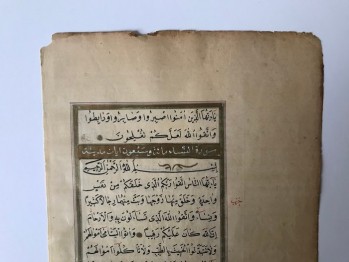 يَا أَيُّهَا الَّذِينَ آمَنُوا اصْبِرُوا وَصَابِرُوا وَرَابِطُوا
وَاتَّقُوا اللَّهَ لَعَلَّكُمْ تُفْلِحُونَ
سورة النساء مائة وسبعون آيات مدنية
بِسْمِ اللَّهِ الرَّحْمٰنِ الرَّحِيمِ
يَا أَيُّهَا النَّاسُ اتَّقُوا رَبَّكُمُ الَّذِي خَلَقَكُمْ مِنْ نَفْسٍ
وَاحِدَةٍ وَخَلَقَ مِنْهَا زَوْجَهَا وَبَثَّ مِنْهُمَا رِجَالًا كَثِيرًا
وَنِسَاءً وَاتَّقُوا اللَّهَ الَّذِي تَسَاءَلُونَ بِهِ وَالْأَرْحَامَ
إِنَّ اللَّهَ كَانَ عَلَيْكُمْ رَقِيبًا وَآتُوا الْيَتَامَى أَمْوَالَهُمْ
وَلَا تَتَبَدَّلُوا الْخَبِيثَ بِالطَّيِّبِ وَلَا تَأْكُلُوا أَمْوَالَهُمْ